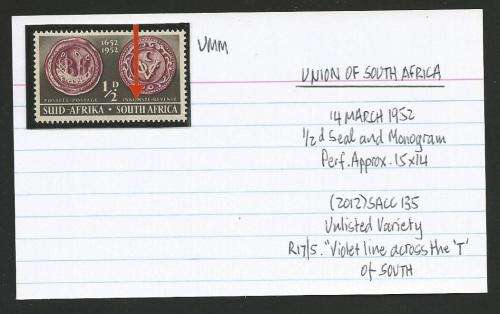 1652
1952
½D
POSSEËL·POSTAGE
INKOMSTE·REVENUE
SUID-AFRIKA · SOUTH AFRICA
UMM
UNION OF SOUTH AFRICA
14 MARCH 1952
½d Seal and Monogram
Perf. Approx. 15x14
(2012) SACC 135
Unlisted Variety
R17/5. "Violet line across the 'T'
of SOUTH